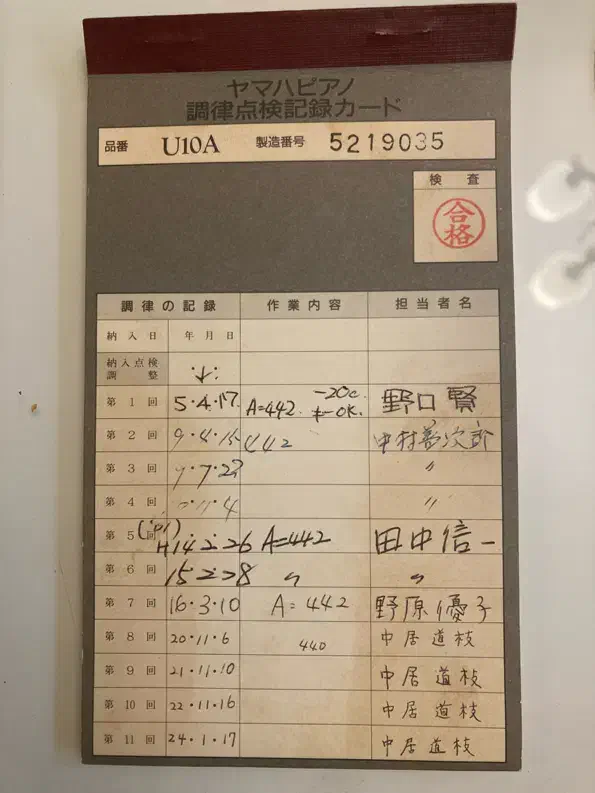 ヤマハピアノ
調律点検記録カード
品番 U10A 製造番号 5219035
検査
合格
調律の記録 作業内容 担当者名
納入日 年月日
納入点検
調整
第1回 5.4.17. A=442. -20c. キーOK. 野口賢
第2回 9.4.15 442 中村
第3回 9.7.23 〃
第4回 11.4 〃
第5回 H14.2.26 A=442 田中信一
第6回 15.2.28 〃 〃
第7回 16.3.10 A=442 野原優子
第8回 20.11.6 440 中居道枝
第9回 21.11.10 中居道枝
第10回 22.11.16 中居道枝
第11回 24.1.17 中居道枝